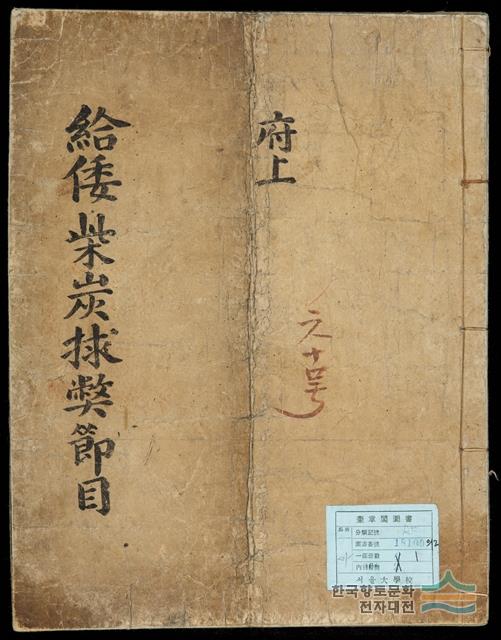 府上
給倭柴炭捄弊節目
奎章閣圖書
分類記號
圖書番號 15100
一函冊數 1
內
서울大學校
한국향토문화
전자대전